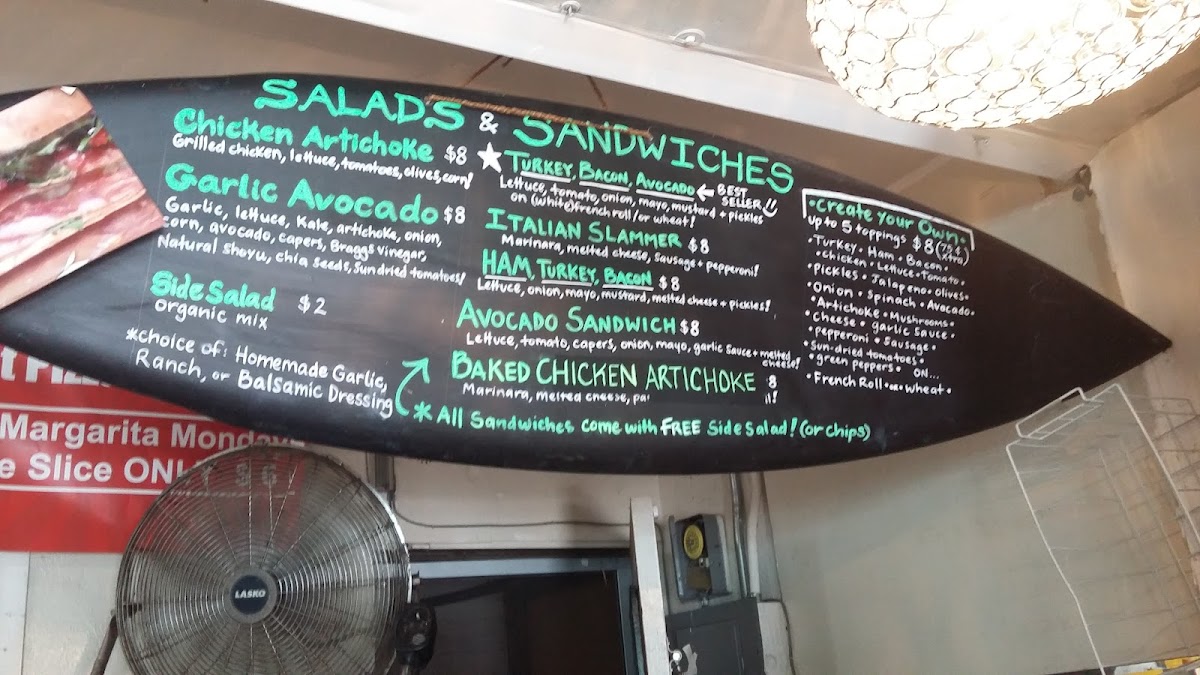 SALADS & SANDWICHES
Chicken Artichoke $8
Grilled chicken, lettuce, tomatoes, olives, corn!
Garlic Avocado $8
Garlic, lettuce, Kale, artichoke, onion,
corn, avocado, capers, Braggs vinegar,
Natural shoyu, chia seeds, sundried tomatoes!
Side Salad $2
organic mix
*choice of: Homemade Garlic,
Ranch, or Balsamic Dressing
★ TURKEY, BACON, AVOCADO ← BEST
SELLER!!
Lettuce, tomato, onion, mayo, mustard + pickles
on (white) french roll / or wheat!
ITALIAN SLAMMER $8
Marinara, melted cheese, sausage + pepperoni!
HAM, TURKEY, BACON $8
Lettuce, onion, mayo, mustard, melted cheese + pickles!
AVOCADO SANDWICH $8
Lettuce, tomato, capers, onion, mayo, garlic sauce + melted
cheese!
BAKED CHICKEN ARTICHOKE 8
Marinara, melted cheese,
* All Sandwiches come with FREE side salad! (or chips)
•Create your Own•
up to 5 toppings $8 (75¢
xtra)
•Turkey • Ham • Bacon •
•chicken • Lettuce • Tomato •
•pickles • Jalapeno • olives •
•Onion • spinach • Avocado •
•Artichoke • Mushrooms •
•cheese • garlic sauce •
•pepperoni • sausage •
•sundried tomatoes •
•green peppers • ON...
•French Roll • or • wheat •
Margarita Monday
Slice ONL
LASKO